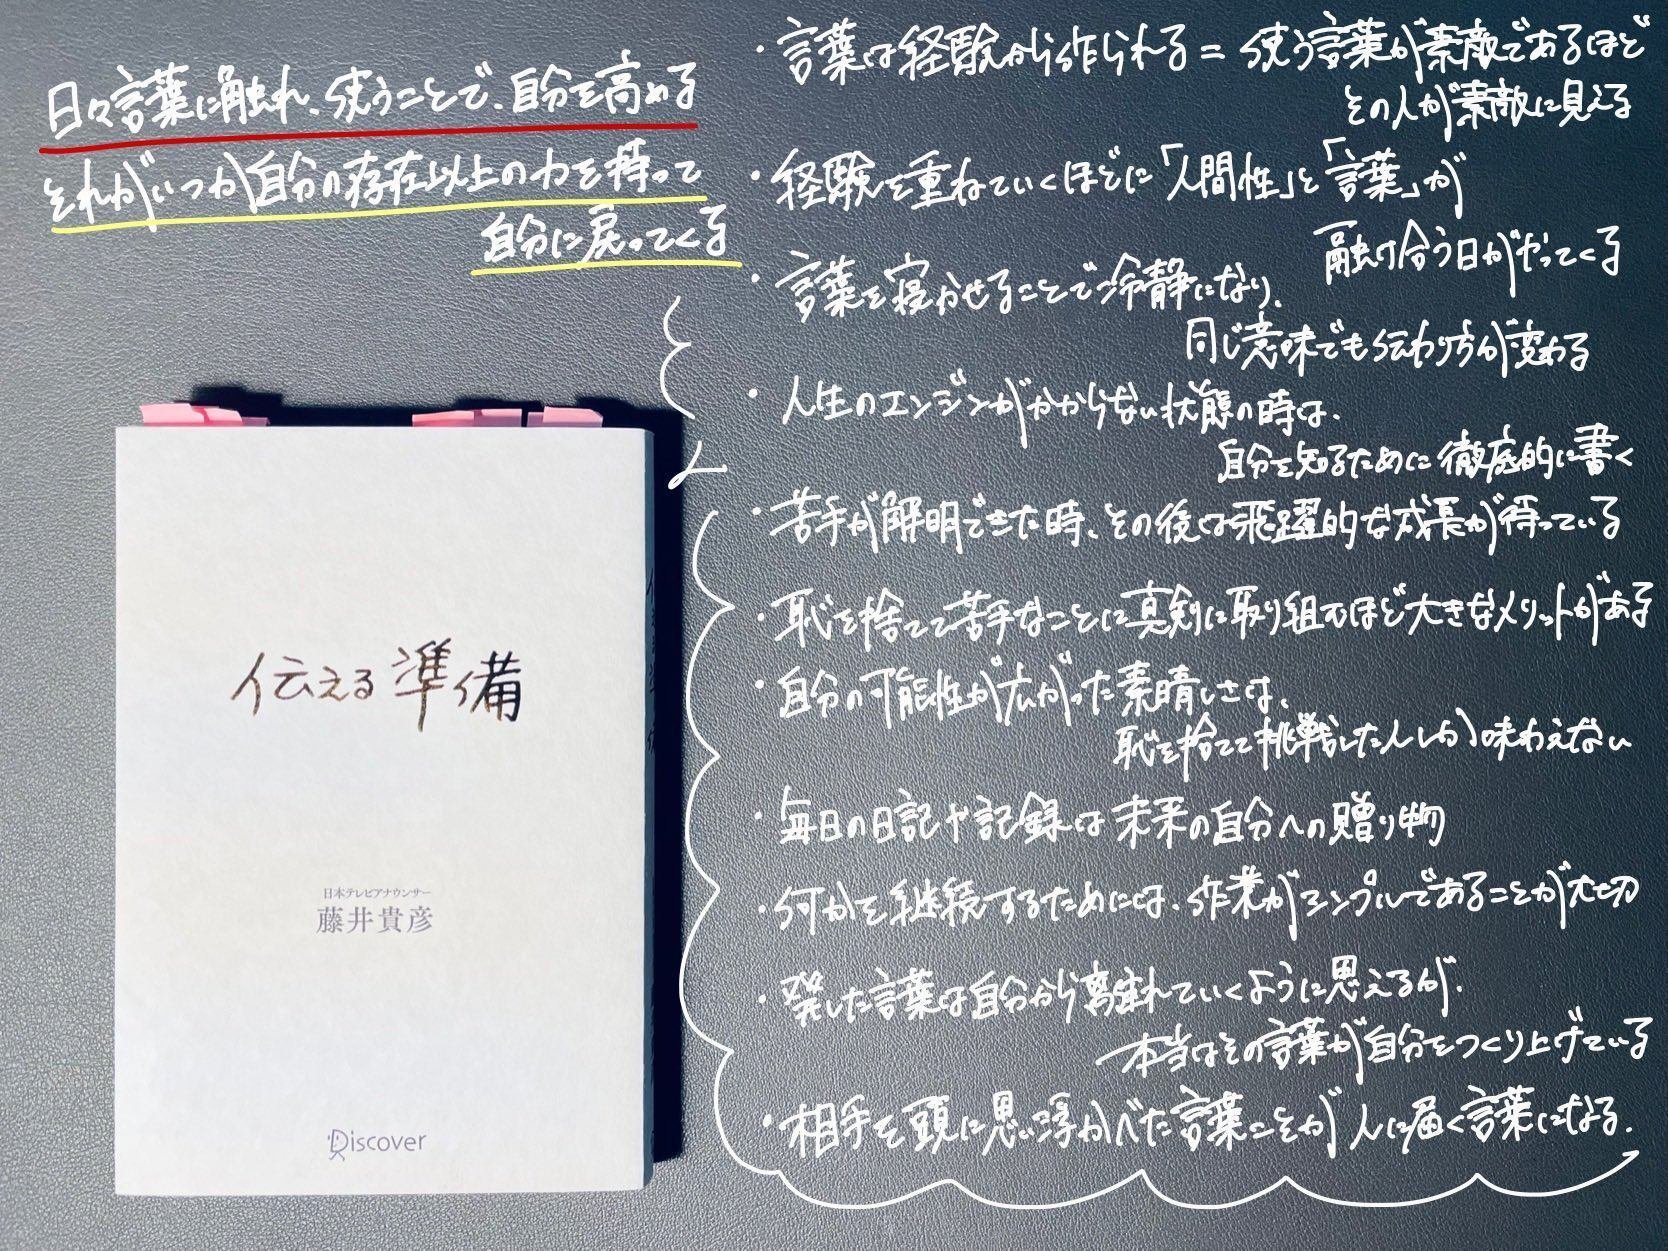 日々言葉に触れ、使うことで、自分を高める
それがいつか自分の存在以上の力を持って
自分に戻ってくる
・言葉は経験から作られる = 使う言葉が素敵であるほど
その人が素敵に見える
・経験を重ねていくほどに「人間性」と「言葉」が
融け合う日がやってくる
・言葉を寝かせることで冷静になり、
同じ意味でも伝わり方が変わる
・人生のエンジンがかからない状態の時は、
自分を知るために徹底的に書く
・苦手が解明できた時、その後は飛躍的な成長が待っている
・恥を捨てて苦手なことに真剣に取り組むほど大きなメリットがある
・自分の可能性が広がった素晴しさは、
恥を捨てて挑戦した人しか味わえない
・毎日の日記や記録は未来の自分への贈り物
・何かを継続するためには、作業がシンプルであることが大切
・発した言葉は自分から離れていくように思えるが、
本当はその言葉が自分をつくり上げている
・相手を頭に思い浮かべた言葉こそが人に届く言葉になる.
伝える準備
日本テレビアナウンサー
藤井貴彦
Discover